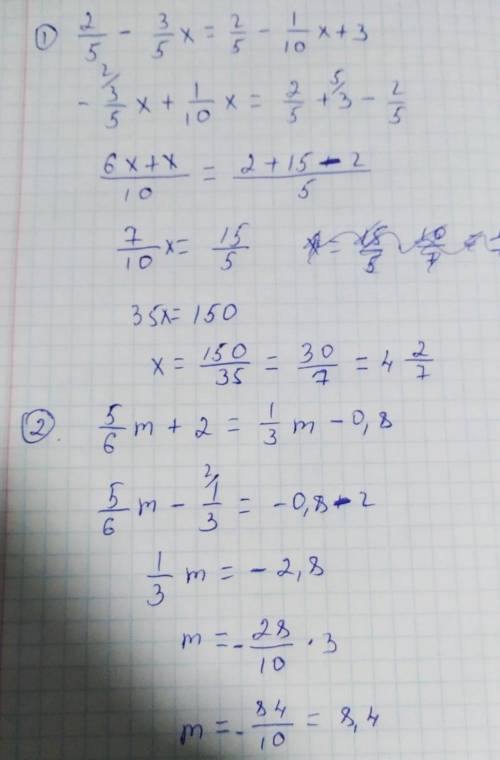 ① 2/5 - 3/5 x = 2/5 - 1/10 x + 3
- 2/ 3/5 x + 1/10 x = 2/5 + 5/ 3 - 2/5
(6x+x)/10 = (2+15-2)/5
7/10 x = 15/5
35x = 150
x = 150/35 = 30/7 = 4 2/7
② 5/6 m + 2 = 1/3 m - 0,8
5/6 m - 2/ 1/3 = -0,8 - 2
1/3 m = - 2,8
m = - 28/10 · 3
m = - 84/10 = 8,4